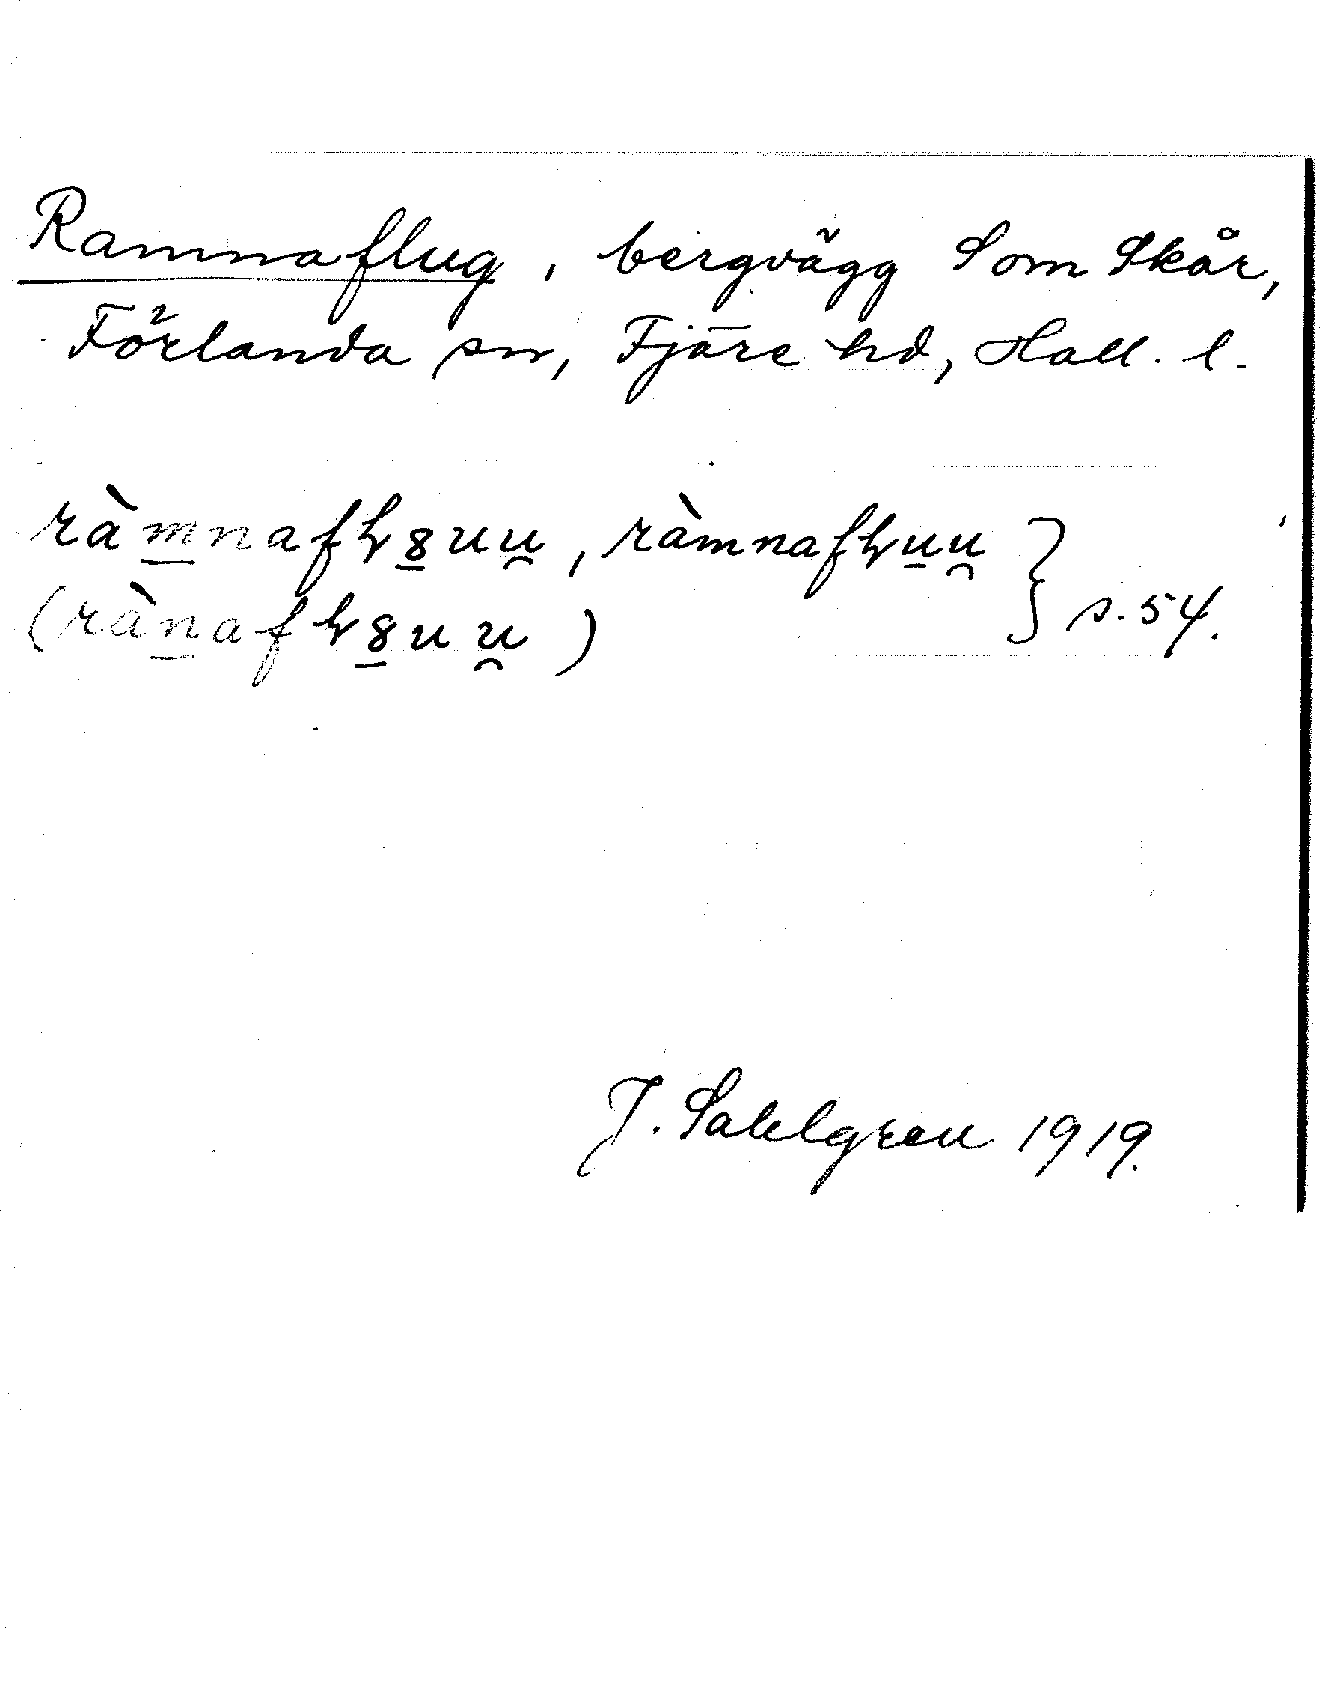 Ramnaflug, bergvägg Som Skår,
Förlanda sn, Fjäre hd, Hall. l.
ràm̲nafɫ8̲uu̯, ràmnafɫu̲u̯ }
(ràn̲afɫ8̲uu̯) } s. 54.
J. Sahlgren 1919.